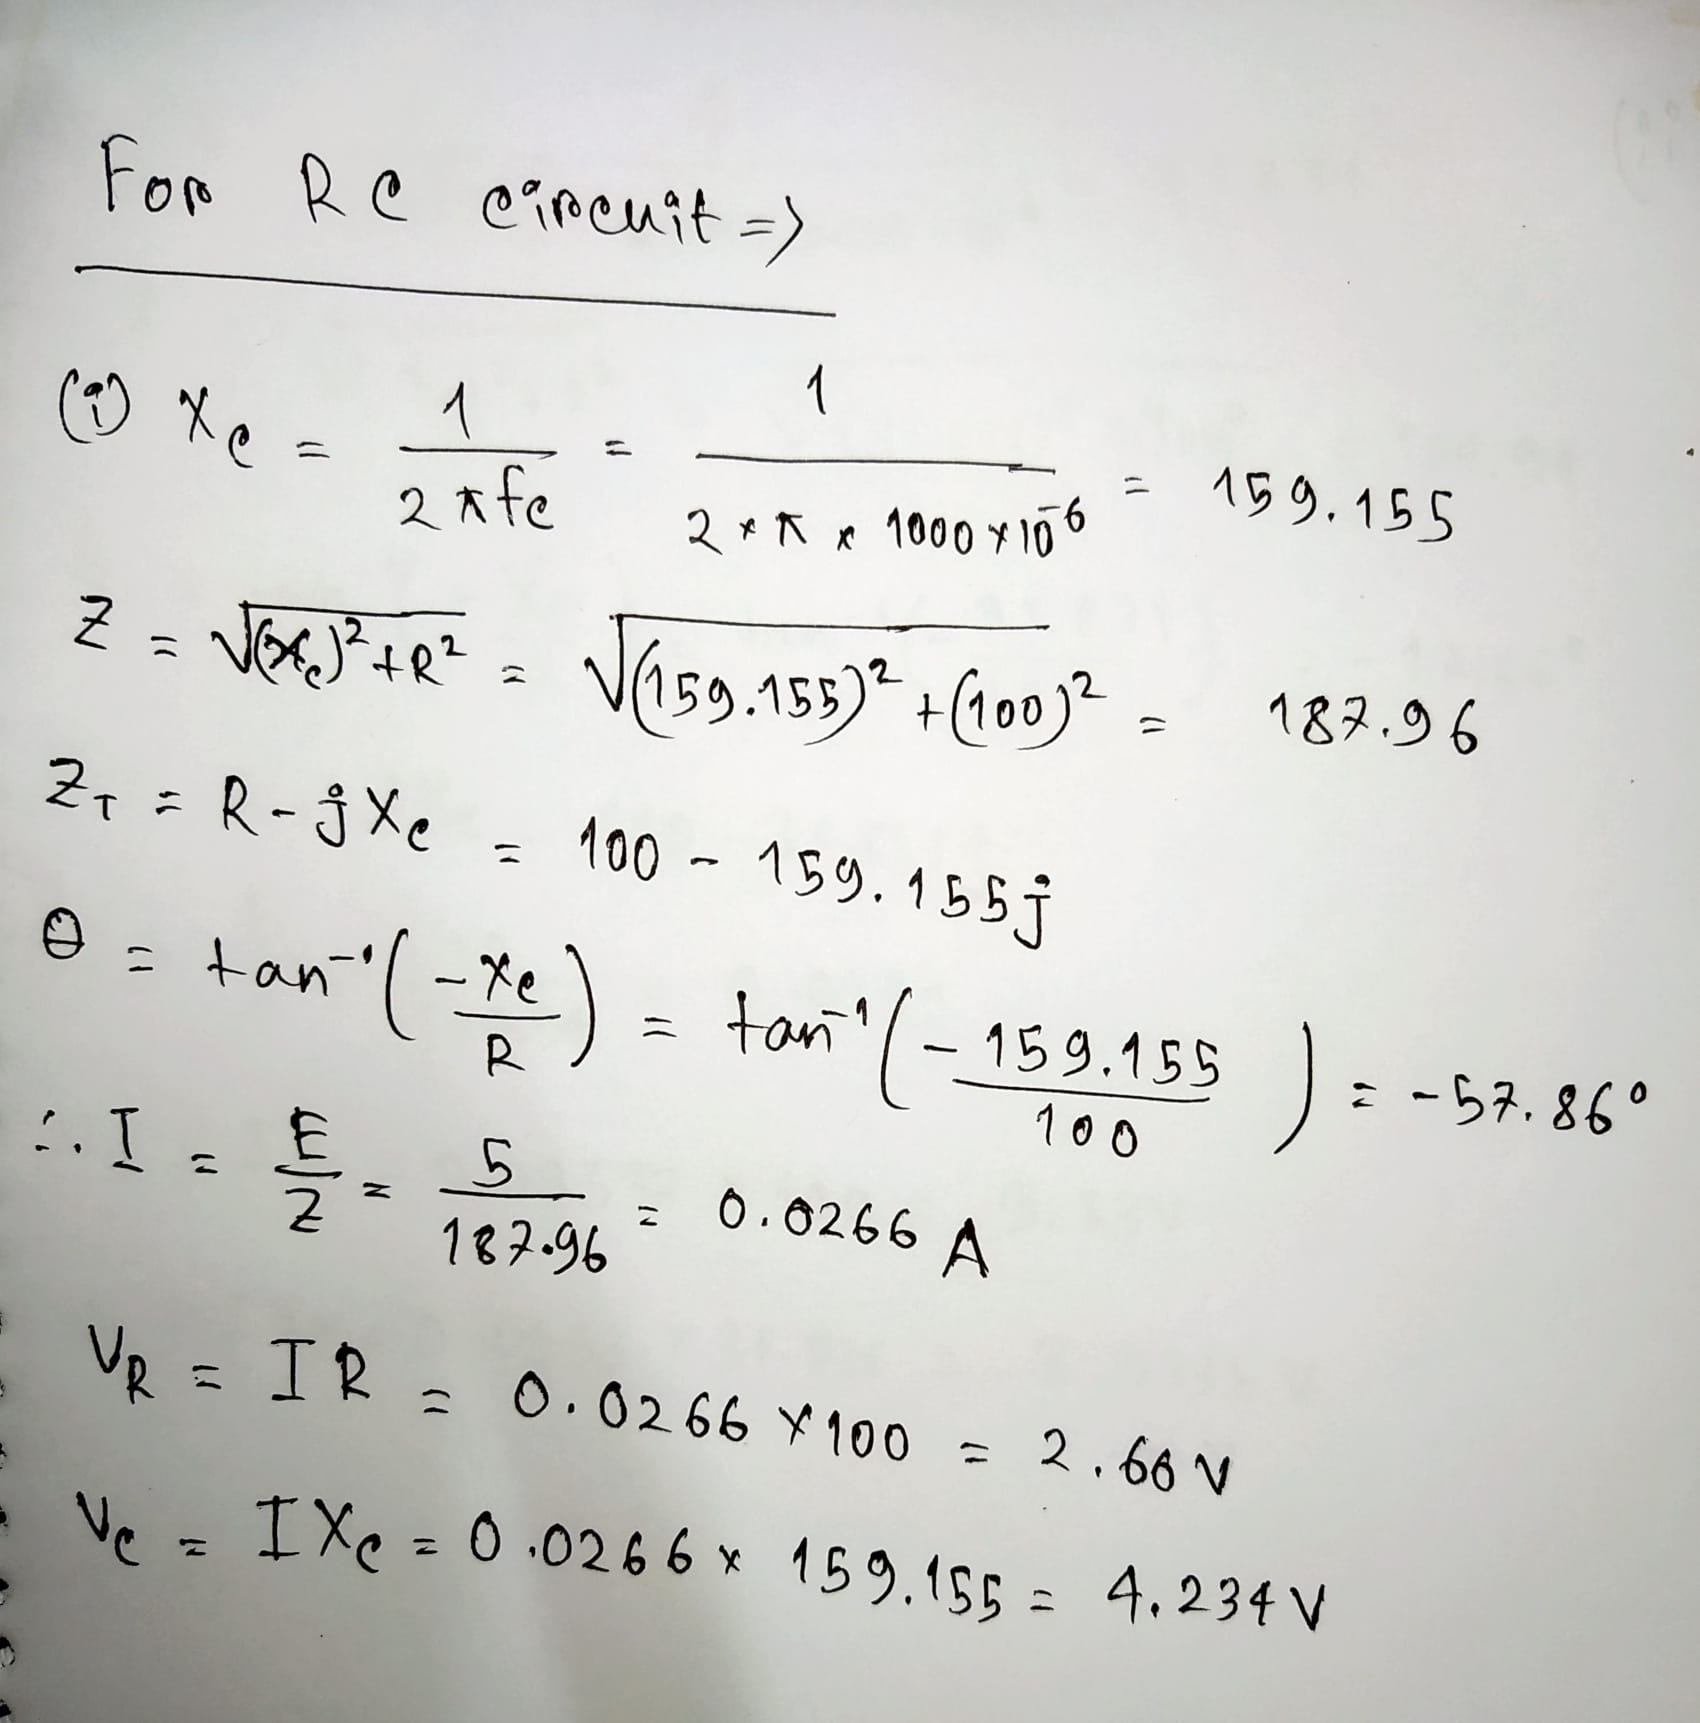 For RC circuit =>
(i) Xc = 1/(2πfc) = 1/(2 × π × 1000 × 10^-6) = 159.155
Z = √((Xc)² + R²) = √((159.155)² + (100)²) = 187.96
Z_T = R - jXc = 100 - 159.155j
θ = tan⁻¹(-Xc/R) = tan⁻¹(-159.155/100) = -57.86°
∴ I = E/Z = 5/187.96 = 0.0266 A
V_R = IR = 0.0266 × 100 = 2.66 V
Vc = IXc = 0.0266 × 159.155 = 4.234 V